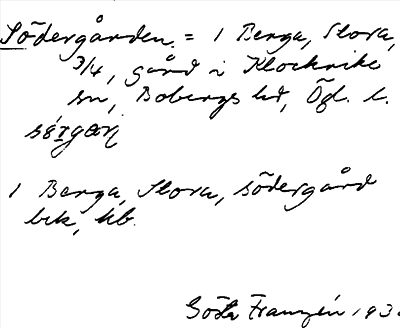 Södergården. = 1 Berga, Stora,
3/4, gård i Klockrike
sn, Bobergs hd, Ögl. l.
1 Berga, Stora, södergård
btk, kb.
Gösta Franzén 193